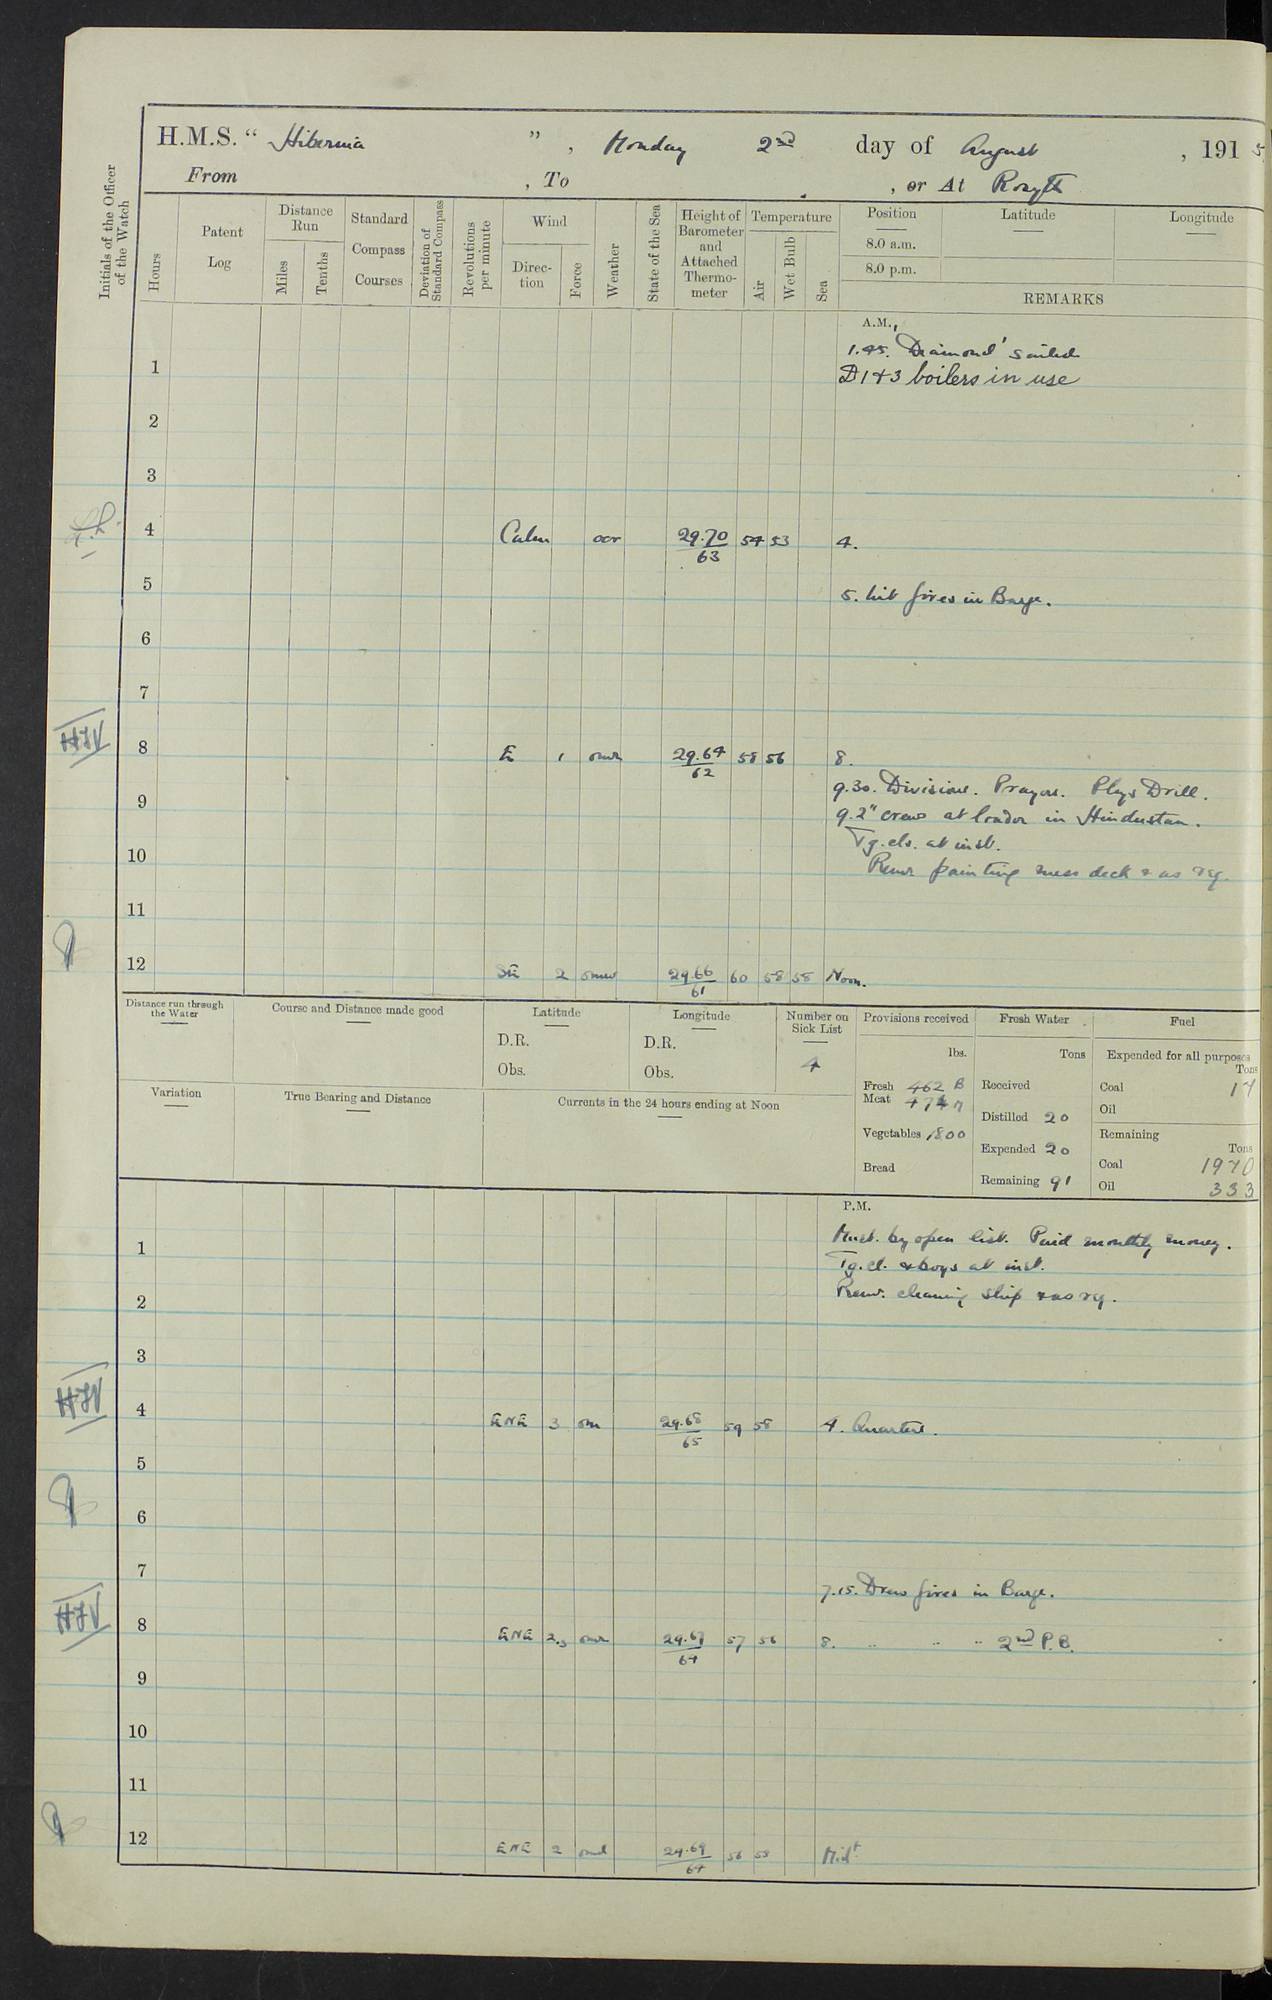 H.M.S. “ Hibernia ” , Monday 2nd day of August , 191 5
From , To , or At Rosyth
Initials of the Officer of the Watch
Hours
Patent Log
Distance Run
Miles
Tenths
Standard Compass Courses
Deviation of Standard Compass
Revolutions per minute
Wind
Direction
Force
Weather
State of the Sea
Height of Barometer and Attached Thermometer
Temperature
Air
Wet Bulb
Sea
Position Latitude Longitude
8.0 a.m.
8.0 p.m.
REMARKS
A.M.
1.45. 'Diamond' sailed
1 D 1 & 3 boilers in use
2
3
4 Calm 29.70/63 54 53 4.
5 5. Lit fires in Barge.
6
7
HJV
8 E 1 29.64/62 58 56 8.
9.30. Divisions. Prayers. Phys Drill.
9 9.2" crews at loader in Hindustan.
Tg. cls. at inst.
10 Remr painting mess deck & as req.
11
12 SE 2 29.66/61 60 58 58 Noon.
Distance run through the Water
Course and Distance made good
Latitude
D.R.
Obs.
Longitude
D.R.
Obs.
Number on Sick List
4
Provisions received
lbs.
Fresh Meat 462 B
474
Vegetables 1800
Bread
Fresh Water
Tons
Received
Distilled 20
Expended 20
Remaining 91
Fuel
Expended for all purposes
Tons
Coal 17
Oil
Remaining
Tons
Coal 1970
Oil 333
Variation
True Bearing and Distance
Currents in the 24 hours ending at Noon
P.M.
1 Must. by open list. Paid monthly money.
Tg. cl. & boys at inst.
2 Remr. cleaning ship & as req.
3
HJV
4 ENE 3 om 29.68/65 59 58 4. Quarters.
5
6
7 7.15. Drew fires in Barge.
HJV
8 ENE 2.3 29.67/64 57 56 8. " " " 2nd P.B.
9
10
11
12 ENE 2 29.69/64 56 55 Midt